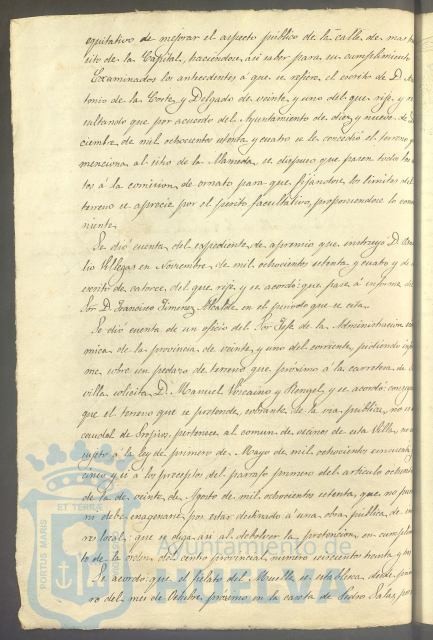 equitativo de mejorar el aspecto público de la calle de mas
cito de la Capital, haciendose asi saber para su cumplimiento
Examinados los antecedentes á que se refiere el escrito de D.
tonio de la Corte y Delgado de veinte y uno del que rije, y
sultando que por acuerdo del Ayuntamiento de diez y nueve de
ciembre de mil ochocientos setenta y cuatro se le concedió el terreno
menciona al sitio de la Alameda, se dispuso que pasen todos
tos á la comision de ornato para que fijandose los limites del
terreno se aprecie por el perito facultativo, proponiendose lo
niente.
Se dió cuenta del expediente de apremio que instruyó D.
lio Villegas en Noviembre de mil ochocientos setenta y cuatro y
escrito de catorce del que rije y se acordó: que pase á informe
Sor D. Francisco Gimenez Alcalde en el periodo que se cita.
Se dió cuenta de un oficio del Sor Gefe de la Administracion
omica de la provincia de veinte y uno del corriente, pidiendo
me sobre un pedazo de terreno que próximo á la carretera de
villa solicita D. Manuel Vizcaino y Rengel, y se acordó:
que el terreno que se pretende, sobrante de la via publica, no
caudal de Propios, pertenece al comun de vecinos de esta Villa,
sujeto á la ley de primero de Mayo de mil ochocientos cincuenta
cinco y si á los preceptos del parrafo primero del articulo
de la de veinte de Agosto de mil ochocientos setenta, que no
ni debe enagenarse por estar destinado á una obra publica de
res local: que se diga asi al debolver la pretencion en
to de la orden del centro provincial numero seiscientos treinta y
Se acordó: que el fielato del Muelle se establezca desde
ro del mes de Octubre próximo en la caseta de Pedro Salas,
PORTUS MARIS
ET TERRÆ
Ayuntamiento de